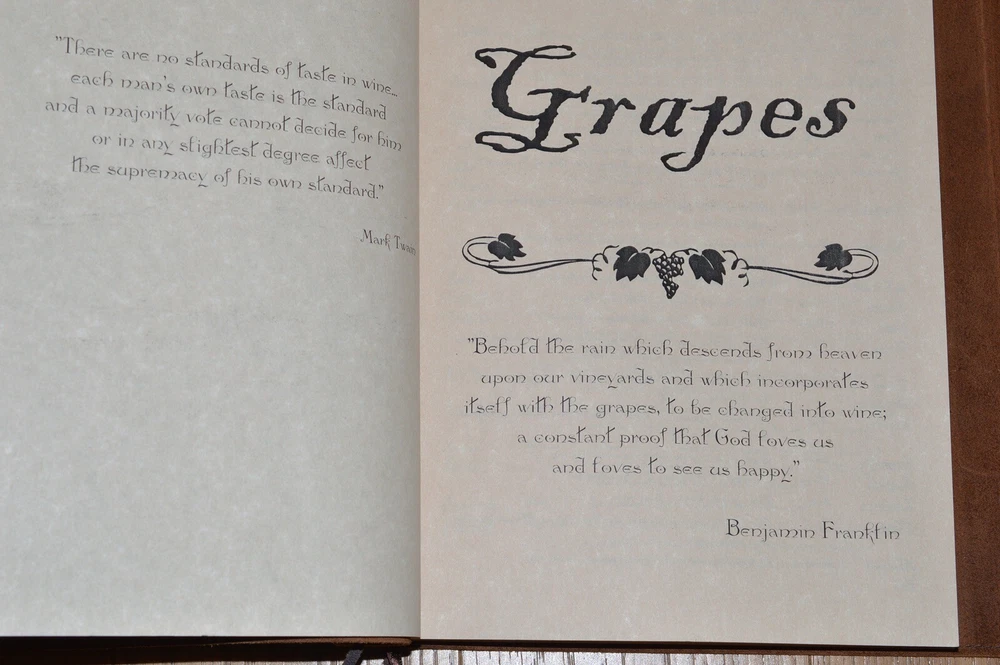 "There are no standards of taste in wine...
each man's own taste is the standard
and a majority vote cannot decide for him
or in any slightest degree affect
the supremacy of his own standard."
Mark Twain
Grapes
"Behold the rain which descends from heaven
upon our vineyards and which incorporates
itself with the grapes, to be changed into wine;
a constant proof that God loves us
and loves to see us happy."
Benjamin Franklin